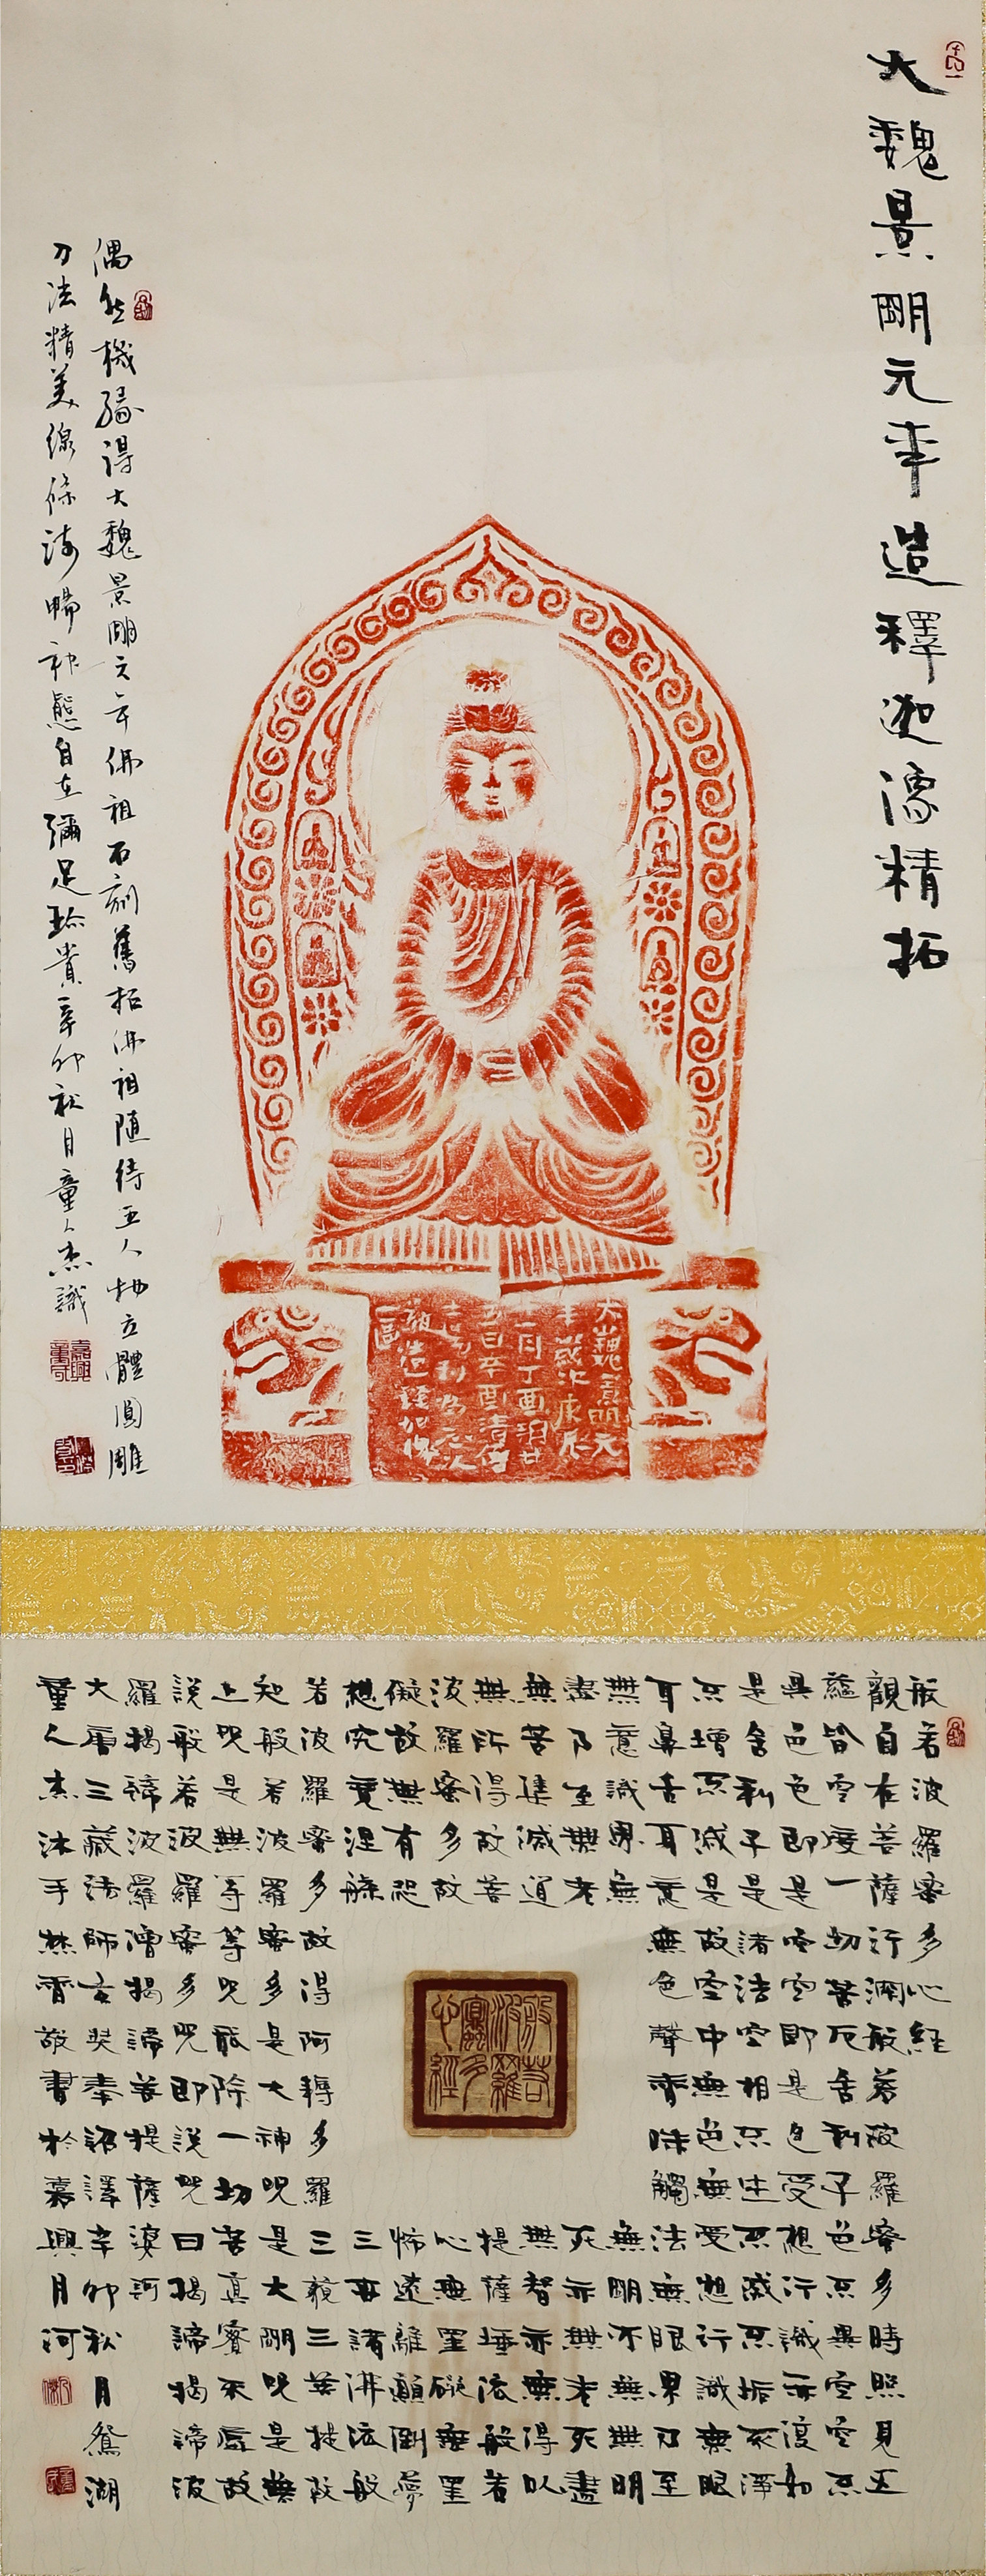 大魏景朙元年造釋迦像精拓
偶然機緣得大魏景朙元年佛祖石刻舊拓佛祖隨侍五人物立體圓雕
刀法精美線條流暢神態自在彌足珍貴辛卯秋月童人杰識
大魏景明元
年歲次庚辰
十一月丁酉朔廿
五日辛酉清信
士利為亡父
敬造釋迦像
一區
般若波羅蜜多心経
觀自在菩薩行深般若波羅蜜多時照見五
蘊皆空度一切苦厄舍利子色不異空空不
異色色即是空空即是色受想行識亦復如
是舍利子是諸法空相不生不滅不垢不淨
不增不減是故空中無色無受想行識無眼
耳鼻舌耳意無色聲香味觸法無眼界乃至
無意識界無無朙亦無無明
盡乃至無老死亦無老死盡
無苦集滅道無智亦無得以
無所得故菩提薩埵依般若
波羅蜜多故心無罣礙無罣
礙故無有恐怖遠離顛倒夢
想究竟涅槃三世諸佛依般
若波羅蜜多故得阿耨多羅三藐三菩提故
知般若波羅蜜多是大神呪是大朙呪是無
上呪是無等等呪能除一切苦真實不虛故
說般若波羅蜜多呪即說呪曰揭諦揭諦波
羅揭諦波羅僧揭諦菩提薩婆訶
大唐三藏法師玄奘奉詔譯辛卯秋月鴛湖
童人杰沐手焚香敬書於嘉興月河
般若
波羅
蜜多
心經